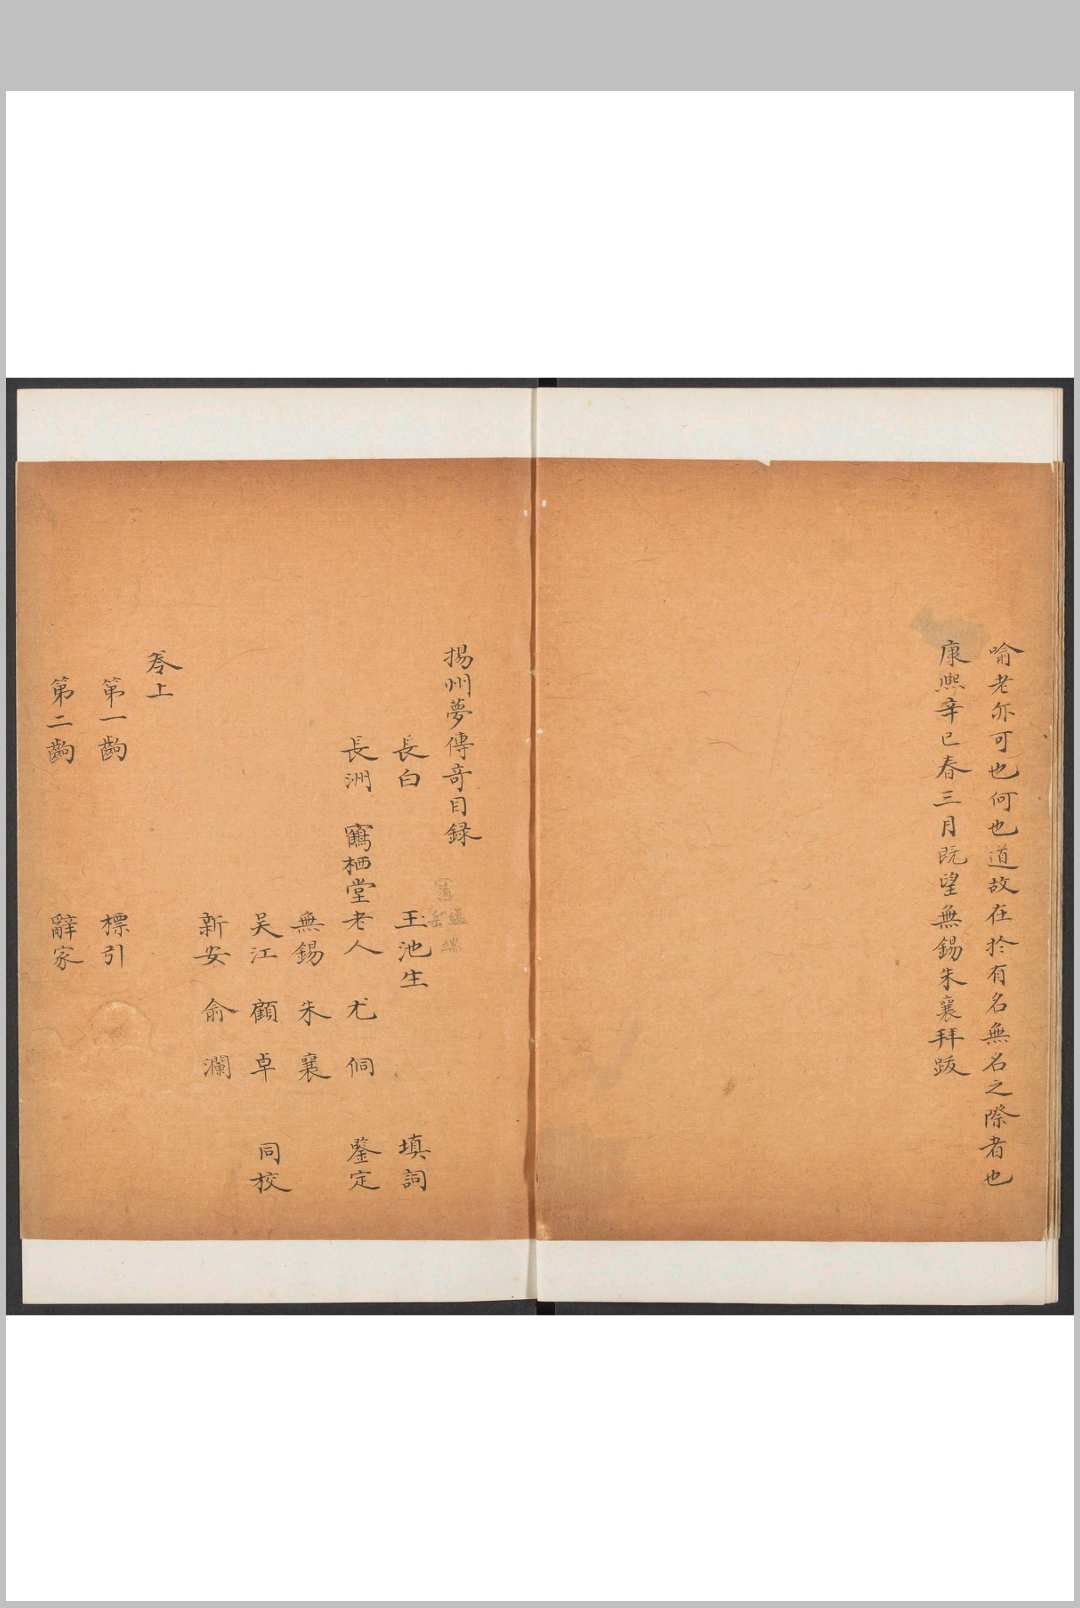 喻老亦可也何也道故在於有名無名之際者也
康熙辛巳春三月既望無錫朱襄拜跋
揚州夢傳奇目録
長白 玉池生 填詞
長洲 鶴栖堂老人 尤侗 鑒定
無錫 朱襄
吴江 顧卓 同校
新安 俞瀾
卷上
第一齣 標引
第二齣 辭家